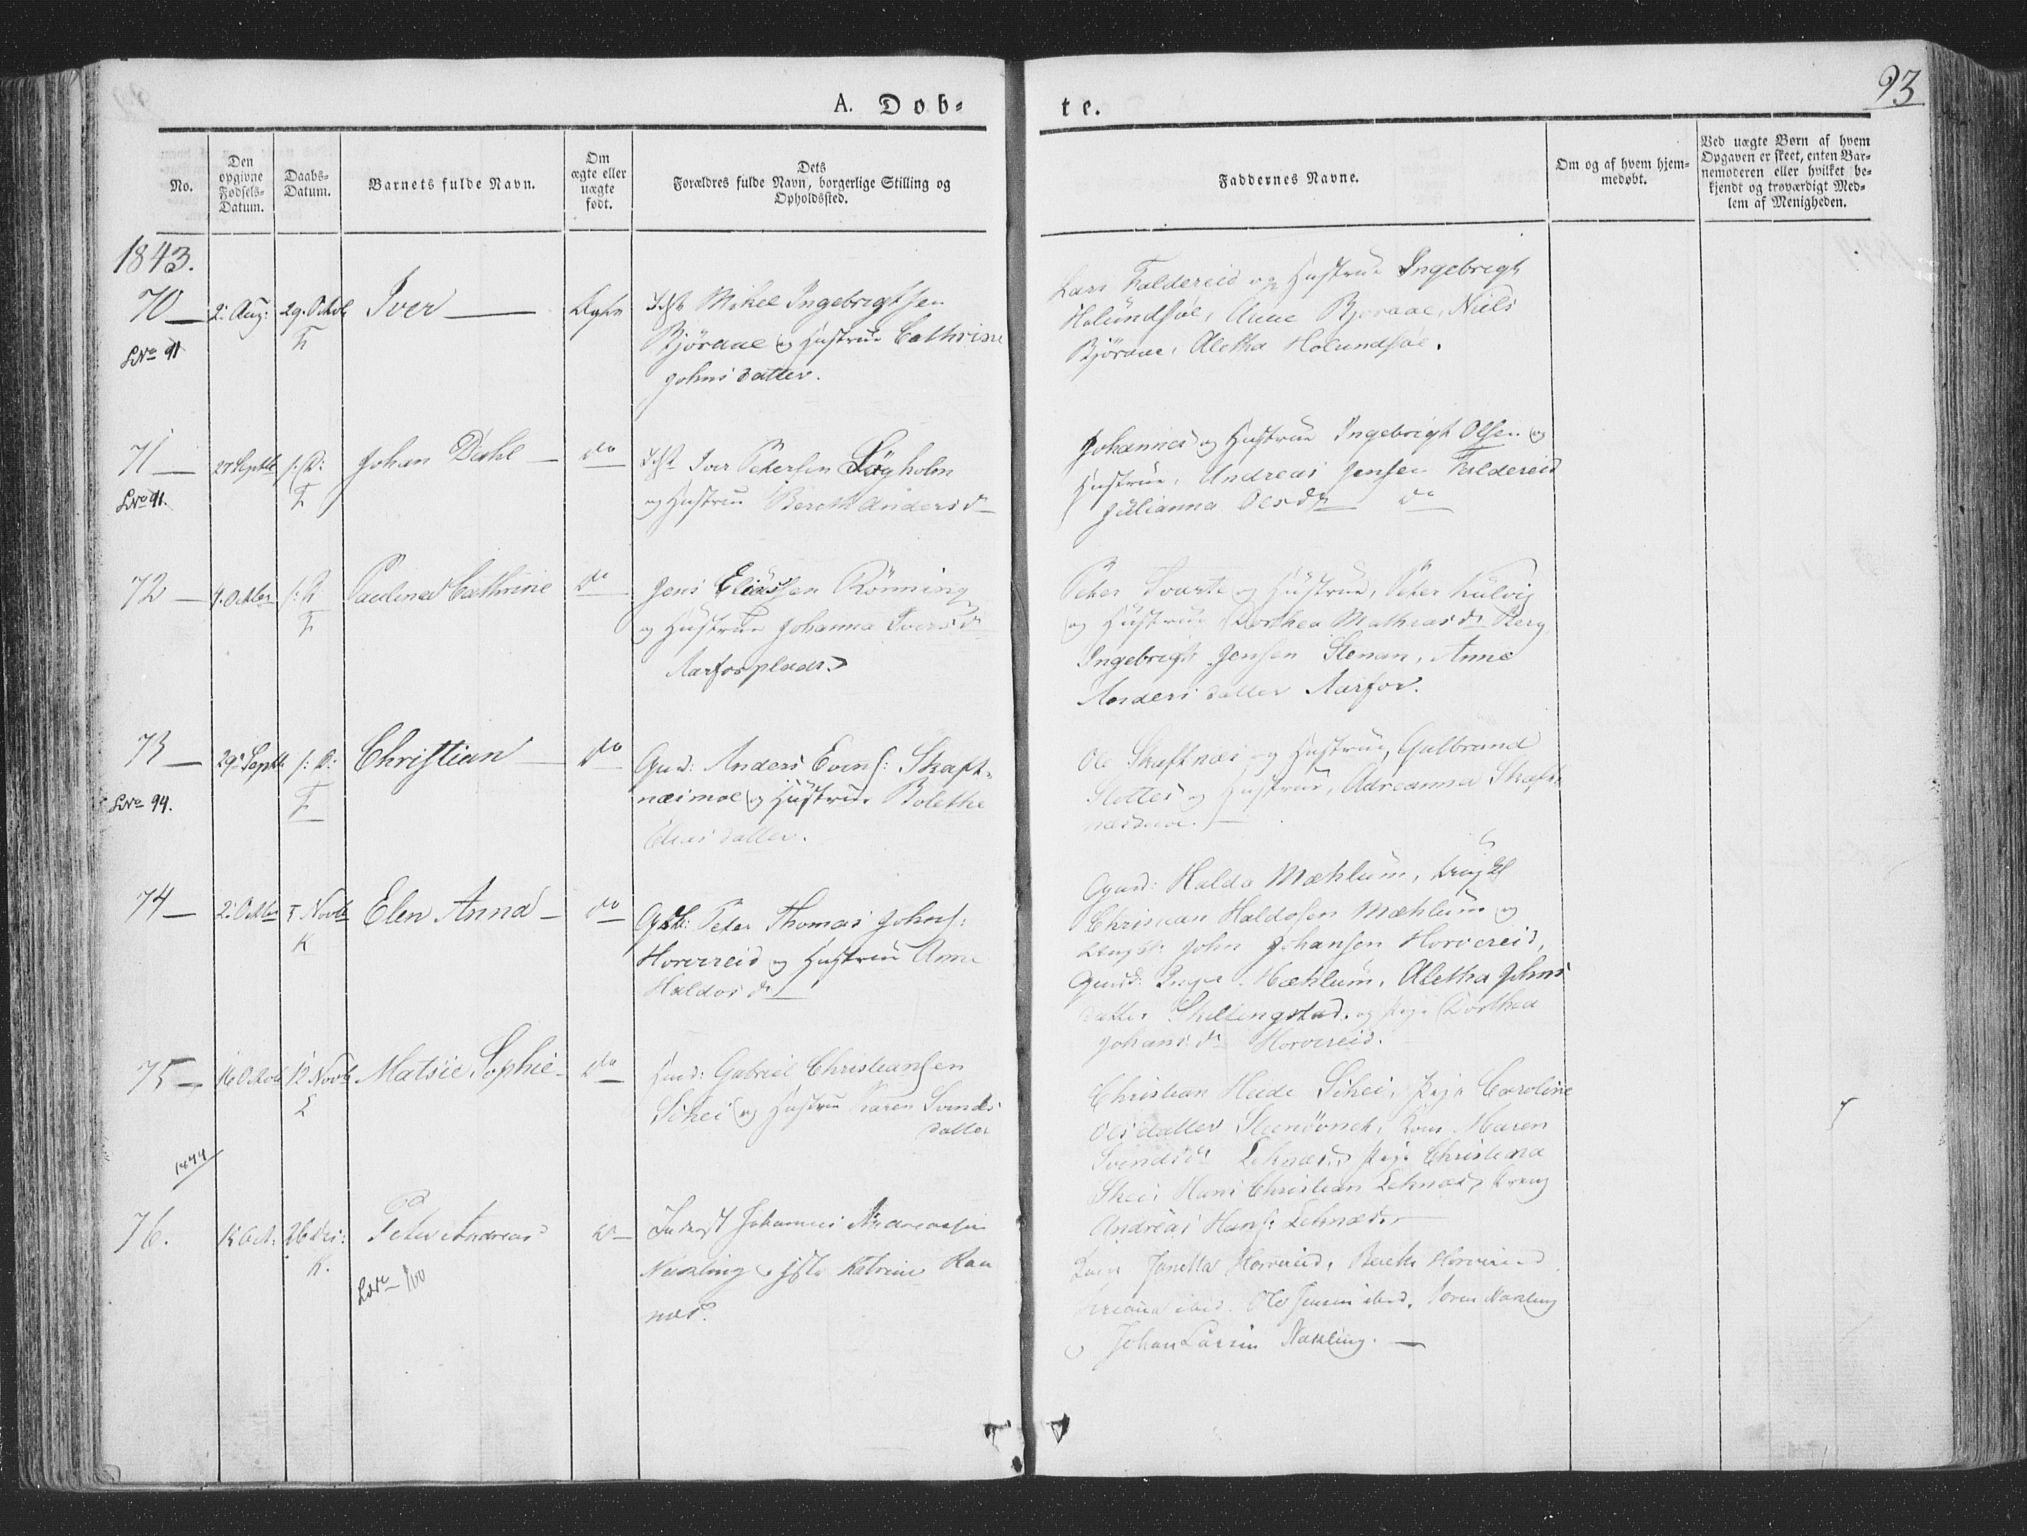 A. Dob-
te.
93
No.
Den
opgivne
Fødsels-
Datum.
Daabs-
Datum.
Barnets fulde Navn.
Om
ægte eller
uægte
født.
Dets
Forældres fulde Navn, borgerlige Stilling og
Opholdssted.
Faddernes Navne.
Om og af hvem hjem-
medøbt.
Ved uægte Børn af hvem
Opgaven er skeet, enten Bar-
nemoderen eller hvilket be-
kjendt og troværdigt Med-
lem af Menigheden.
1843.
70 —
LNo 91
2 Aug:
29. Octob
F
Iver —
Ægte
Mikel Ingebrigtsen
Bjøraae og Hustrue Cathrine
Johnsdatter.
Lars Faldereid og Hustrue Ingebrigt
Holundsøe, Anne Bjøraae, Niels
Bjøraae, Aletha Holundsøe.
71 —
LNo 91.
27 Septb
s: D:
F
Johan Dahl —
do
Iver Petersen Løgholm
og Hustrue Bereth Andersd
Johannes og Hustrue Ingebrigt Olsen og
Hustrue, Andreas Jensen Faldereid
Julianna Olsdr do
72 —
4. Octber
s: D
F
Paulina Cathrine
do
Jens Eliassen Rönning
og Hustrue Johanna Iversd
Aarforplads
Peter Svarte og Hustrue, Peter Kulvig
og Hustrue Dorthea Mathiasdr Berg
Ingebrigt Jensen Stenan, Anne
Andersdatter Aarfor.
73 —
LNo 94.
29 Septb
s: D:
F
Christian —
do
Gmd: Anders Evens: Skaft-
næsmoe og Hustrue Bolethe
Eliasdatter.
Ole Skaftnæs og Hustrue, Gulbrand
Slottes og Hustrue, Adreanna Skaft-
74 —
2 Octber
5 Novb
K
Elen Anna —
do
Peter Thomas Johns:
Horvereid og Hustrue Anne
Haldosdr
Gmd: Haldo Mæhlum,
Christian Haldosen Mæhlum og
John Johansen Horvereid,
Mæhlum, Aletha Johns
datter Skillingstad og Pige Dorthea
Johansdr Horvereid.
75 —
16 Octob
12 Novb
L
Matsie Sophie
do
Huusd: Gabriel Christiansen
Schei og Hustrue Karen Svends
datter
Christian Hede Schei, Pige Caroline
Olsdatter Steensønek, Kone Maren
Svendsdr Lehnæs, Pige Christiana
Shei, Hans Christian Lehnæs, Dreng
Andreas Hans: Lehnæs
1844
76.
12 Oct:
26 Dec:
K.
Peter Andreas
LNo 100
do
Inderst Johannes Andreassen
Nakling og Hstr Katrine Ran
næs.
Kone Jonetta Horvereid, Bereth Horvereid
ibid. Ole Jensen ibid, Søren Nakling
og Johan Larsen Nakling. —